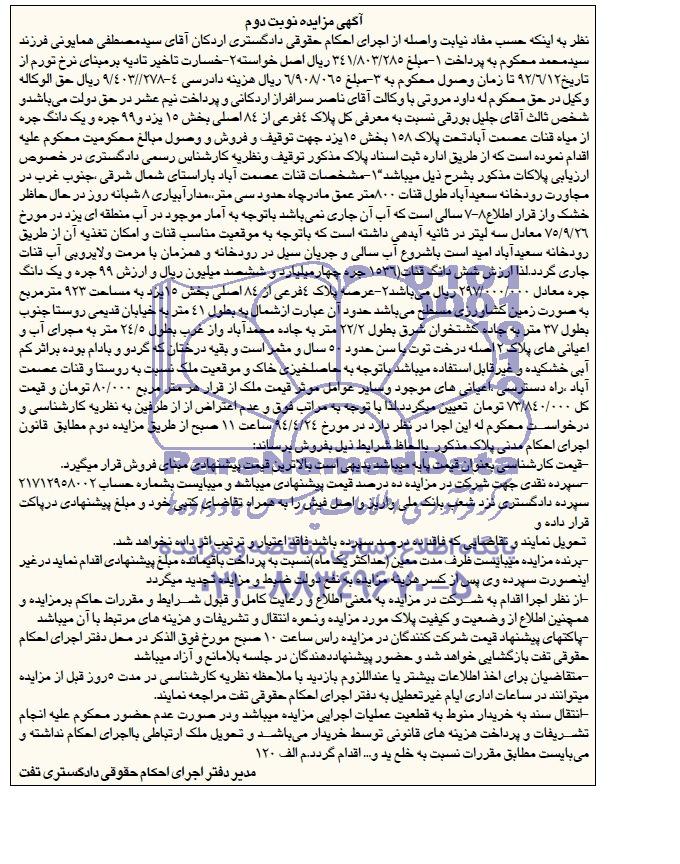 آگهی مزایده نوبت دوم
نظر به اینکه حسب مفاد نیابت واصله از اجرای احکام حقوقی دادگستری اردکان آقای سیدمصطفی همایونی فرزند
سیدمحمد محکوم به پرداخت ۱-مبلغ ۳۴۱/۸۰۳/۲۸۵ ریال اصل خواسته۲-خسارت تاخیر تادیه برمبنای نرخ تورم از
تاریخ۹۲/۶/۱۲ تا زمان وصول محکوم به ۳-مبلغ ۶/۹۰۸/۰۶۵ ریال هزینه دادرسی ۴-۹/۴۰۳//۲۷۸ ریال حق الوکاله
وکیل در حق محکوم له داود مروتی با وکالت آقای ناصر سرافراز اردکانی و پرداخت نیم عشر در حق دولت می‌باشدو
شخص ثالث آقای جلیل بورقی نسبت به معرفی کل پلاک ۴فرعی از ۸۴ اصلی بخش ۱۵ یزد و۹۹ جره و یک دانگ جره
از میاه قنات عصمت آبادتحت پلاک ۱۵۸ بخش ۱۵یزد جهت توقیف و فروش و وصول مبالغ محکومیت محکوم علیه
اقدام نموده است که از طریق اداره ثبت اسناد پلاک مذکور توقیف ونظریه کارشناس رسمی دادگستری در خصوص
ارزیابی پلاکات مذکور بشرح ذیل میباشد"۱-مشخصات قنات عصمت آباد باراستای شمال شرقی ،جنوب غرب در
مجاورت رودخانه سعیدآباد طول قنات ۸۰۰متر عمق مادرچاه حدود سی متر،،مدارآبیاری ۸ شبانه روز در حال حاظر
خشک واز قرار اطلاع۸-۷ سالی است که آب آن جاری نمی‌باشد باتوجه به آمار موجود در آب منطقه ای یزد در مورخ
۷۵/۹/۲۶ معادل سه لیتر در ثانیه آبدهی داشته است که باتوجه به موقعیت مناسب قنات و امکان تغذیه آن از طریق
رودخانه سعیدآباد امید است باشروع آب سالی و جریان سیل در رودخانه و همزمان با مرمت ولایروبی آب قنات
جاری گردد.لذا ارزش شش دانگ قنات(۱۵۳۶ جره چهارمیلیارد و ششصد میلیون ریال و ارزش ۹۹ جره و یک دانگ
جره معادل ۲۹۷/۰۰۰/۰۰۰ ریال می‌باشد۲-عرصه پلاک ۴فرعی از ۸۴ اصلی بخش ۱۵یزد به مساحت ۹۲۳ مترمربع
به صورت زمین کشاورزی مسطح می‌باشد حدود آن عبارت ازشمال به بطول ۴۱ متر به خیابان قدیمی روستا جنوب
بطول ۳۷ متر به جاده کشتخوان شرق بطول ۲۲/۲ متر به جاده محمدآباد واز غرب بطول ۲۴/۵ متر به مجرای آب و
اعیانی های پلاک ۲اصله درخت توت با سن حدود ۵۰ سال و مثمر است و بقیه درختان که گردو و بادام بوده براثر کم
آبی خشکیده و غیرقابل استفاده میباشد باتوجه به حاصلخیزی خاک و موقعیت ملک نسبت به روستا و قنات عصمت
آباد ،راه دسترسی ،اعیانی های موجود وسایر عوامل موثر قیمت ملک از قرار هر متر مربع ۸۰/۰۰۰ تومان و قیمت
کل ۷۳/۸۴۰/۰۰۰ تومان تعیین میگردد.لذا با توجه به مراتب فوق و عدم اعتراض از از طرفین به نظریه کارشناسی و
درخواست محکوم له این اجرا در نظر دارد در مورخ ۹۴/۴/۲۴ ساعت ۱۱ صبح از طریق مزایده دوم مطابق قانون
اجرای احکام مدنی پلاک مذکور بالحاظ شرایط ذیل بفروش برساند:
-قیمت کارشناسی بعنوان قیمت پایه میباشد بدیهی است بالاترین قیمت پیشنهادی مبنای فروش قرار میگیرد.
-سپرده نقدی جهت شرکت در مزایده ده درصد قیمت پیشنهادی میباشد و میبایست بشماره حساب ۲۱۷۱۲۹۵۸۰۰۲
سپرده دادگستری نزد شعب بانک ملی واریز و اصل فیش را به همراه تقاضای کتبی خود و مبلغ پیشنهادی درپاکت
قرار داده و
تحویل نمایند و تقاضایی که فاقد ده درصد سپرده باشد فاقد اعتبار و ترتیب اثر داده نخواهد شد.
-برنده مزایده میبایست ظرف مدت معین (حداکثر یک ماه)نسبت به پرداخت باقیمانده مبلغ پیشنهادی اقدام نماید درغیر
اینصورت سپرده وی پس از کسر هزینه مزایده به نفع دولت ضبط و مزایده تجدید میگردد
-از نظر اجرا اقدام به شرکت در مزایده به معنی اطلاع و رعایت کامل و قبول شرایط و مقررات حاکم برمزایده و
همچنین اطلاع از وضعیت و کیفیت پلاک مورد مزایده ونحوه انتقال و تشریفات و هزینه های مرتبط با آن میباشد
-پاکتهای پیشنهاد قیمت شرکت کنندگان در مزایده راس ساعت ۱۰ صبح مورخ فوق الذکر در محل دفتر اجرای احکام
حقوقی تفت بازگشایی خواهد شد و حضور پیشنهاددهندگان در جلسه بلامانع و آزاد میباشد
-متقاضیان برای اخذ اطلاعات بیشتر یا عنداللزوم بازدید با ملاحظه نظریه کارشناسی در مدت ۵روز قبل از مزایده
میتوانند در ساعات اداری ایام غیرتعطیل به دفتر اجرای احکام حقوقی تفت مراجعه نمایند.
-انتقال سند به خریدار منوط به قطعیت عملیات اجرایی مزایده میباشد ودر صورت عدم حضور محکوم علیه انجام
تشریفات و پرداخت هزینه های قانونی توسط خریدار می‌باشد و تحویل ملک ارتباطی بااجرای احکام نداشته و
می‌بایست مطابق مقررات نسبت به خلع ید و... اقدام گردد.م الف ۱۲۰
مدیر دفتر اجرای احکام حقوقی دادگستری تفت
ParsNamadData
پایگاه اطلاع رسانی مناقصه و مزایده
۰۲۱-۸۸۳۴۹۶۷۰-۵